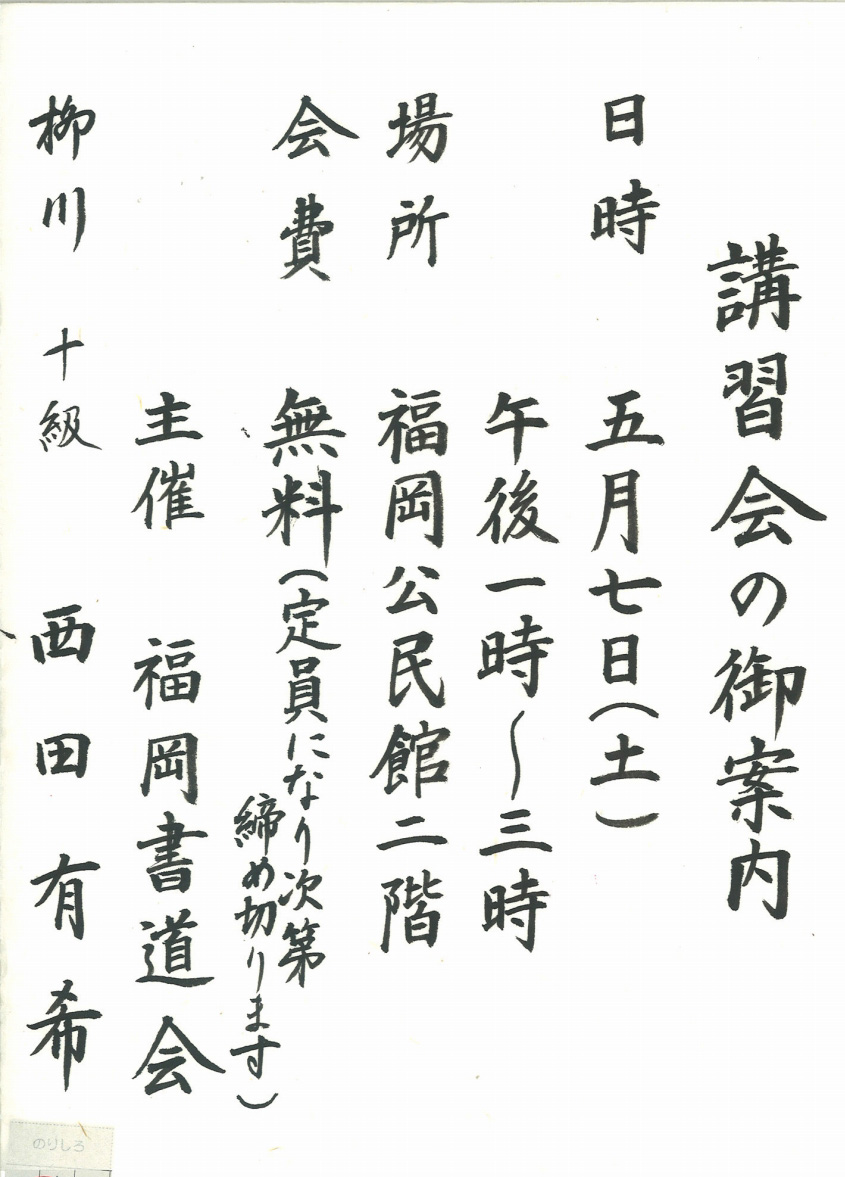 講習会の御案内
日時　五月七日（土）
午後一時〜三時
場所　福岡公民館二階
会費　無料（定員になり次第
締め切ります）
主催　福岡書道会
柳川　十級　西田有希
のりしろ